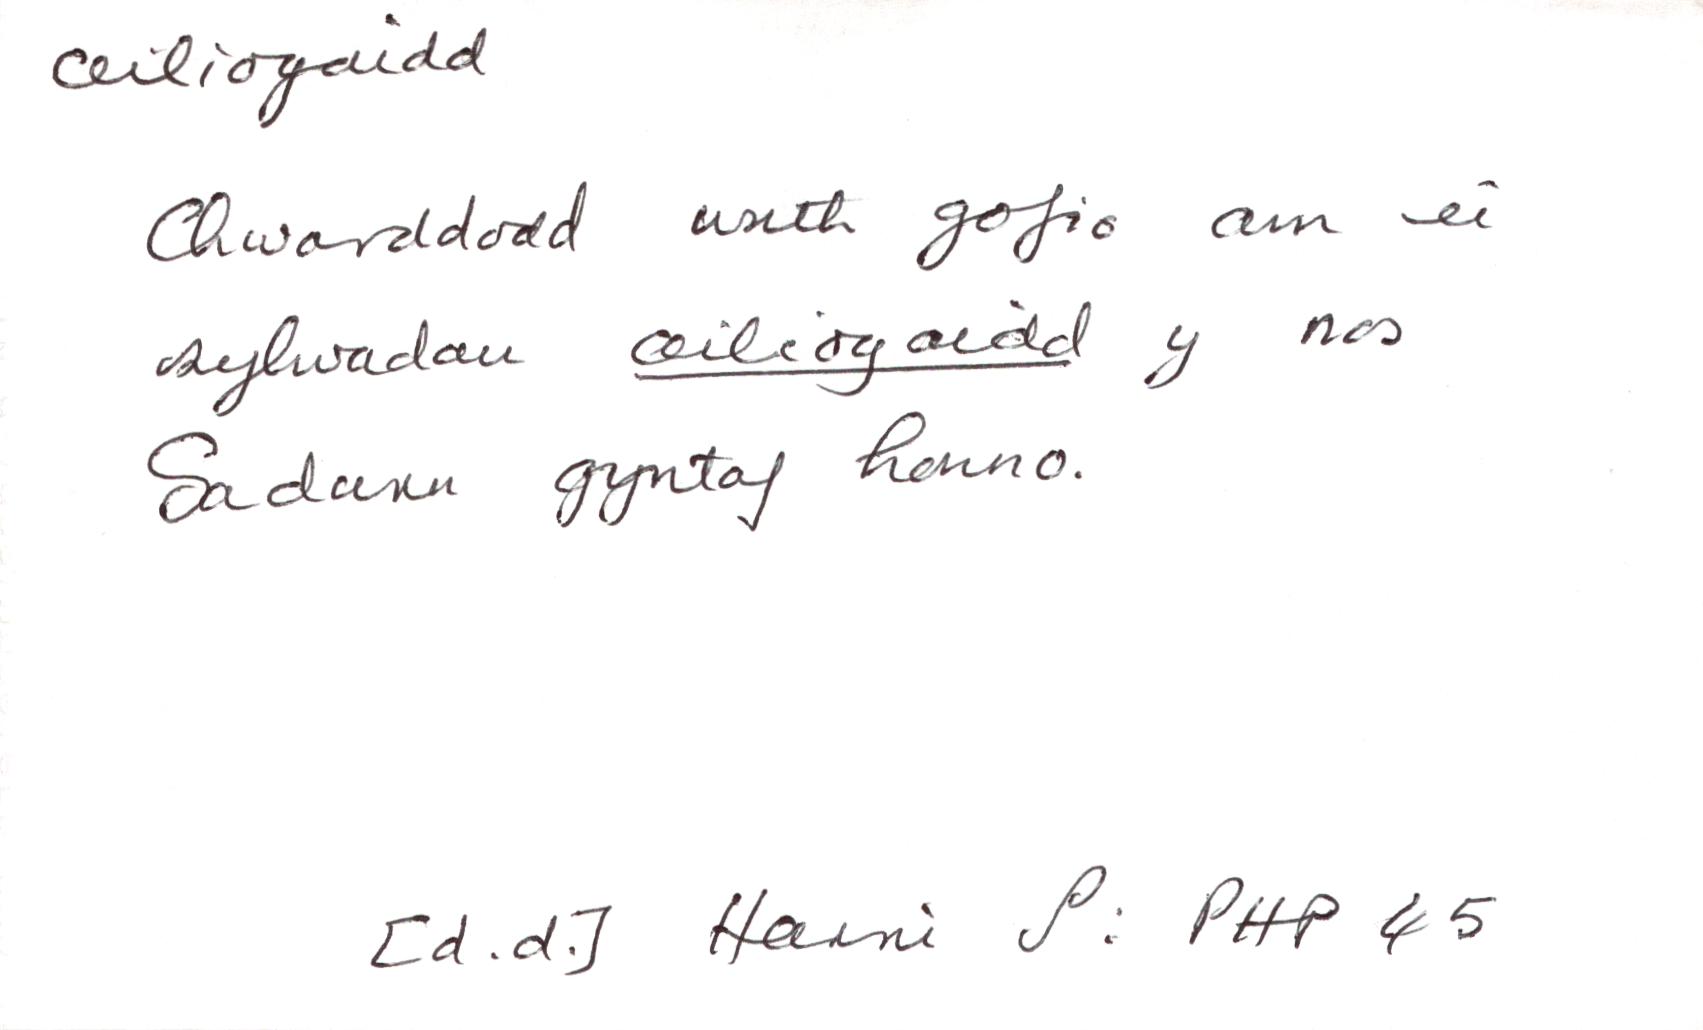 ceiliogaidd
Chwarddodd wrth gofio am ei
sylwadau ceiliogaidd y nos
Sadwrn gyntaf honno.
[d.d.] Harri P: PHP 45